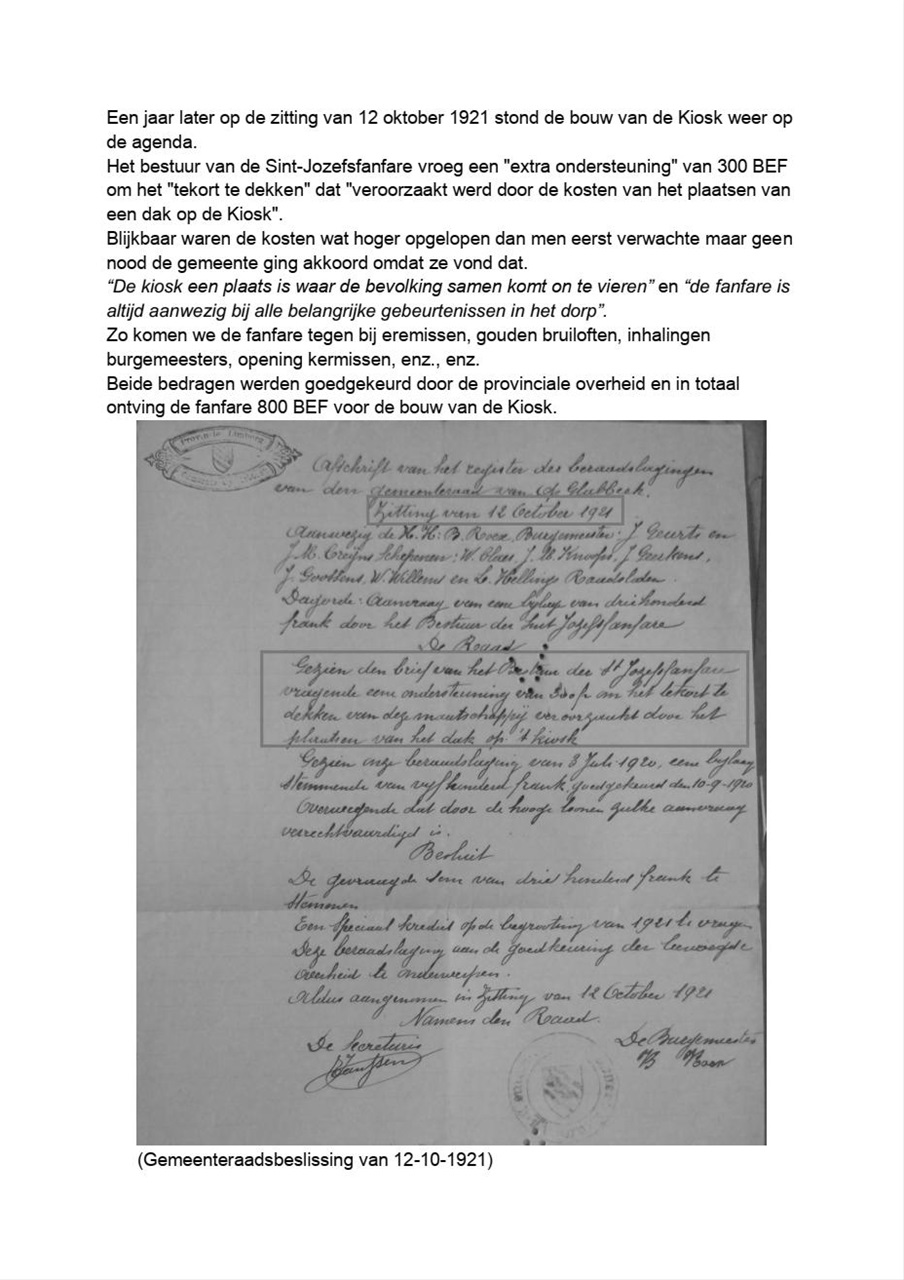 Een jaar later op de zitting van 12 oktober 1921 stond de bouw van de Kiosk weer op
de agenda.
Het bestuur van de Sint-Jozefsfanfare vroeg een "extra ondersteuning" van 300 BEF
om het "tekort te dekken" dat "veroorzaakt werd door de kosten van het plaatsen van
een dak op de Kiosk".
Blijkbaar waren de kosten wat hoger opgelopen dan men eerst verwachte maar geen
nood de gemeente ging akkoord omdat ze vond dat.
“De kiosk een plaats is waar de bevolking samen komt on te vieren” en “de fanfare is
altijd aanwezig bij alle belangrijke gebeurtenissen in het dorp”.
Zo komen we de fanfare tegen bij eremissen, gouden bruiloften, inhalingen
burgemeesters, opening kermissen, enz., enz.
Beide bedragen werden goedgekeurd door de provinciale overheid en in totaal
ontving de fanfare 800 BEF voor de bouw van de Kiosk.
Provincie Limburg
Afschrift van het register der beraadslagingen
van den gemeenteraad van
Zitting van 12 October 1921
Aanwezig de H.H. B. Roox, Burgemeester; J Geurts en
J. M. Creijns Schepenen; W. Claes, J. M. Knoops, J Geerkens,
J. Goossens, W. Willems en L. Hellings Raadsleden.
Dagorde: Aanvraag van eene bijlage van driehonderd
frank door het Bestuur der Sint Jozefsfanfare
De Raad
Gezien den brief van het Bestuur der St Jozefsfanfare
vragende eene ondersteuning van 300 fr om het tekort te
dekken van deze maatschappij veroorzaakt door het
plaatsen van het dak op 't kiosk
Gezien onze beraadslaging van 3 Juli 1920, eene bijlaag
stemmende van vijfhonderd frank, goedgekeurd den 10-9-1920
Overwegende dat door de hooge loonen zulke aanvraag
verrechtvaardigd is.
Besluit
De gevraagde som van drie honderd frank te
stemmen
Een speciaal krediet op de begrooting van 1921 te vragen
Deze beraadslaging aan de goedkeuring der bevoegde
overheid te onderwerpen.
Aldus aangenomen in zitting van 12 October 1921
Namens den Raad.
De Secretaris
De Burgemeester
(Gemeenteraadsbeslissing van 12-10-1921)